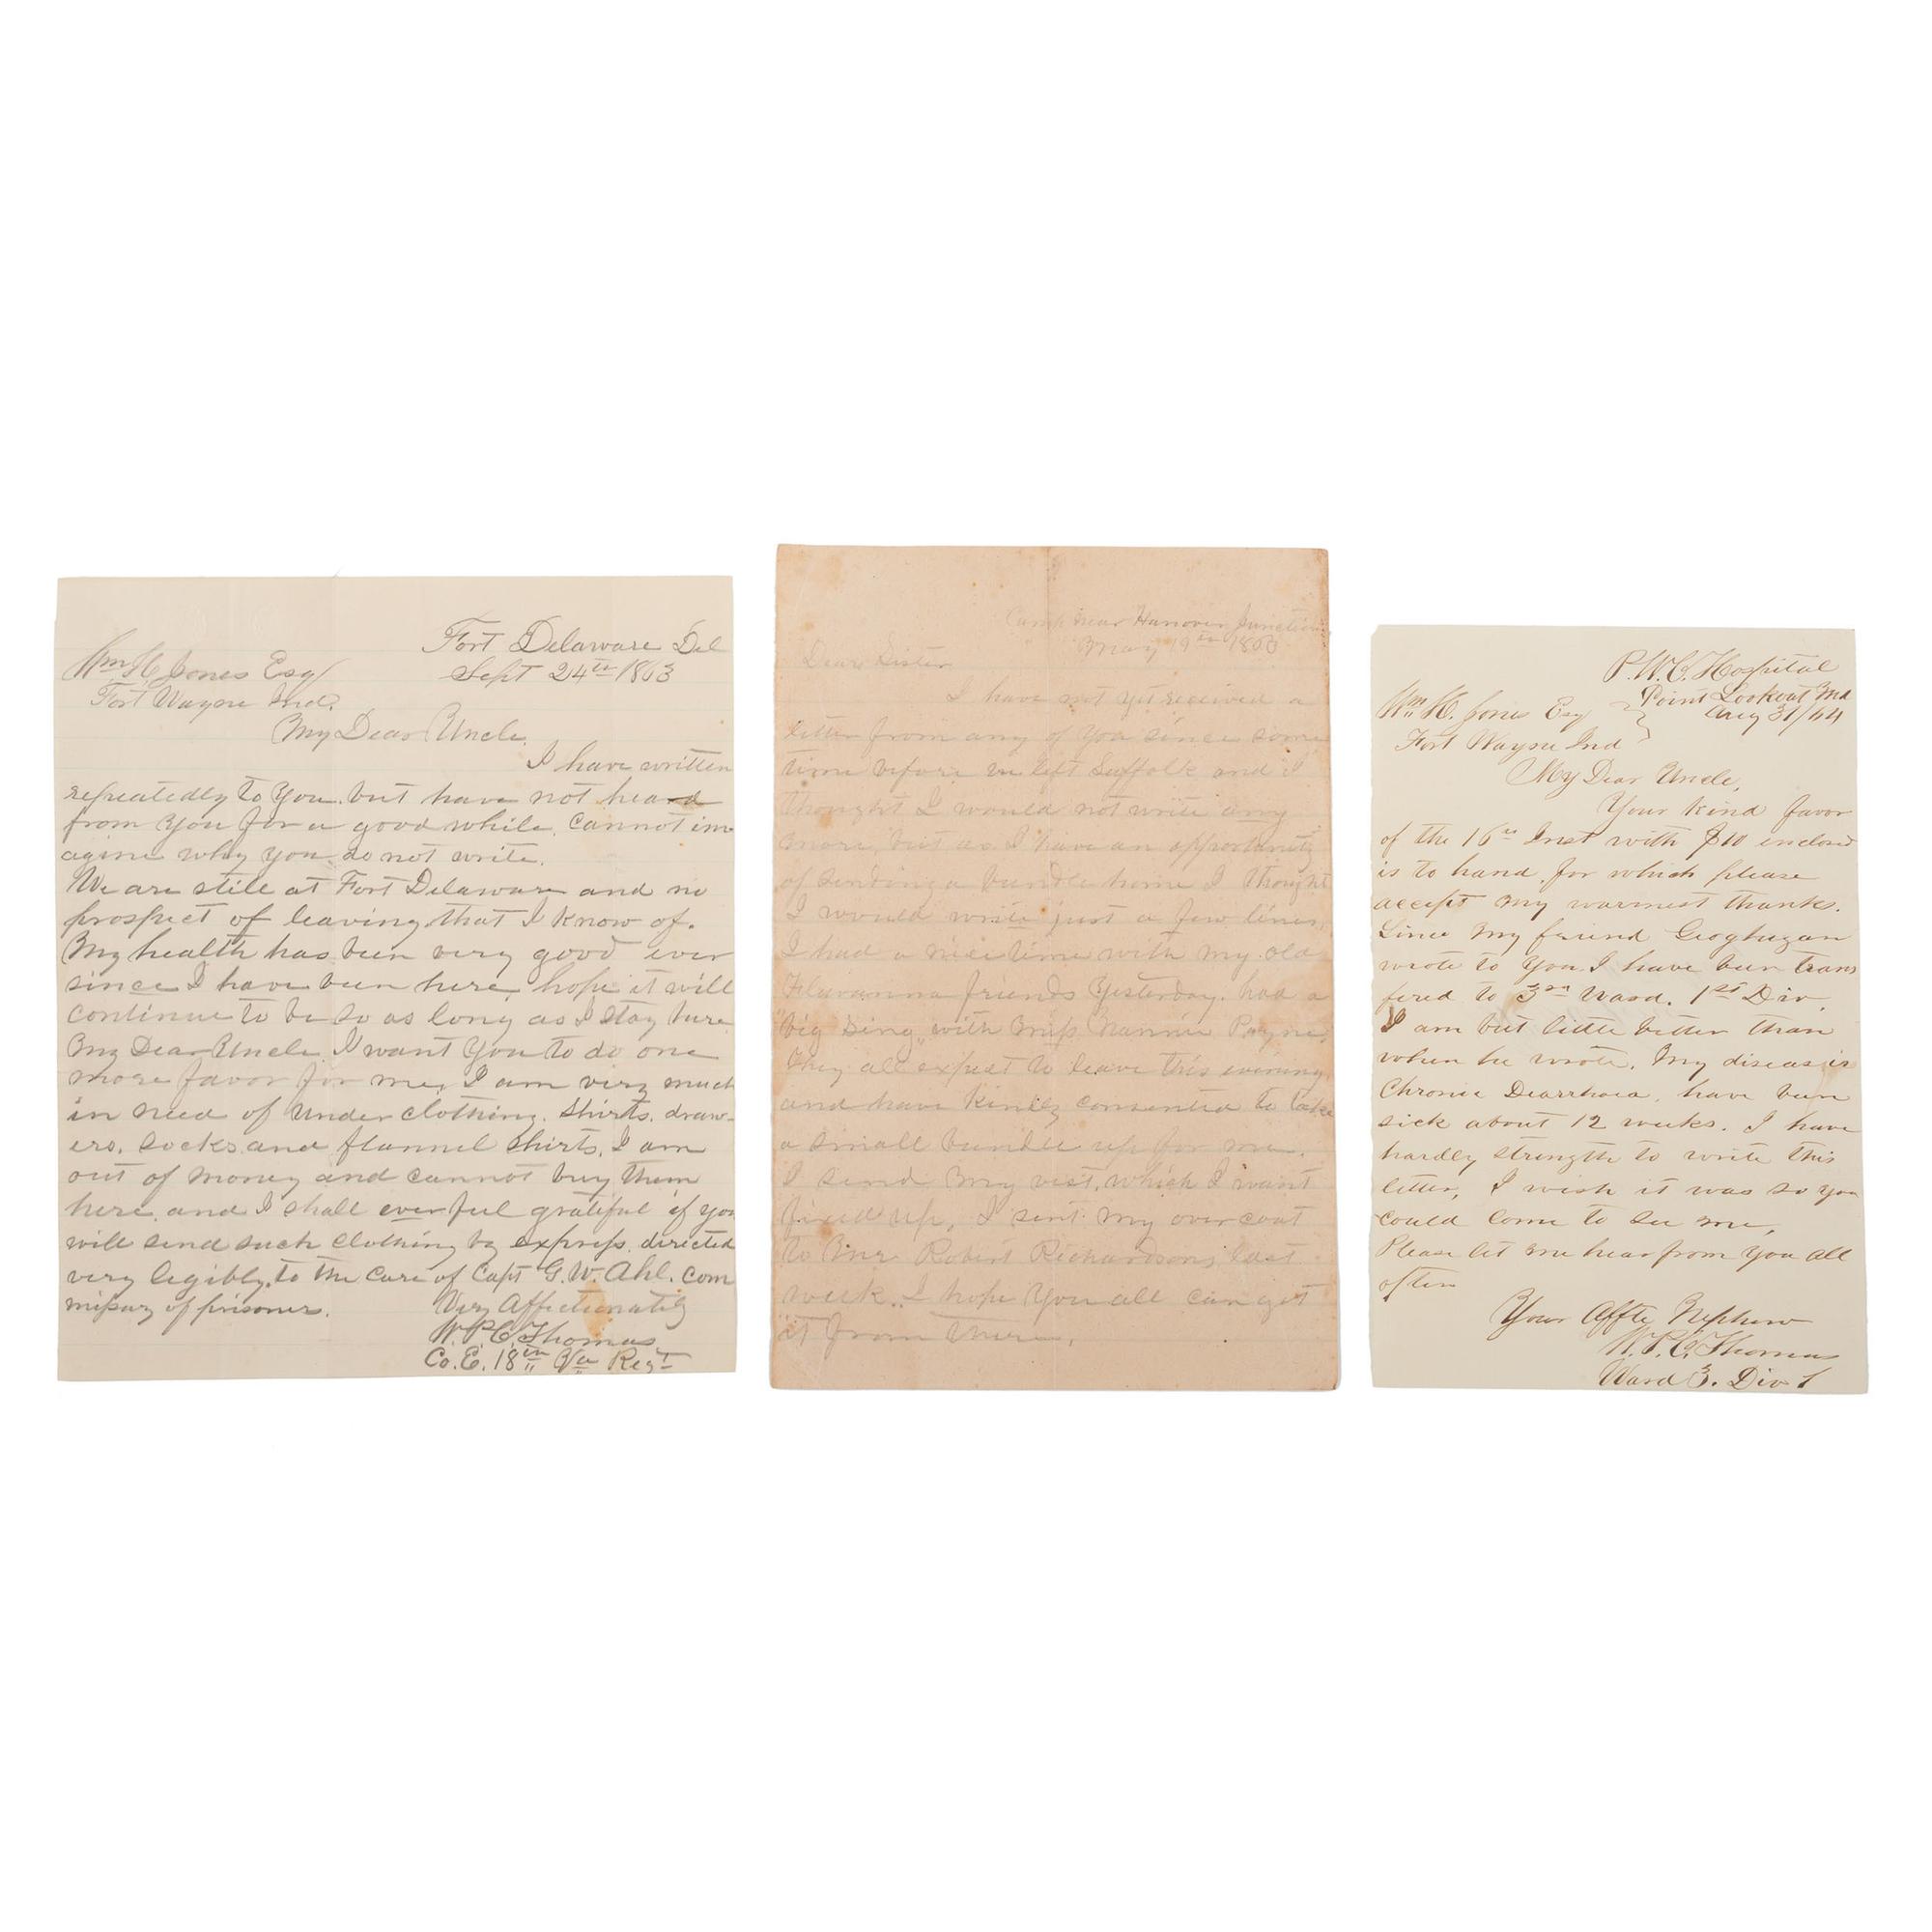 Fort Delaware Del
Sept 24th 1863
Wm H Jones Esq
Fort Wayne Ind.
My Dear Uncle.
I have written
repeatedly to You. but have not heard
from You for a good while. Cannot im
agine why you do not write.
We are still at Fort Delaware and no
prospect of leaving that I know of.
My health has been very good ever
since I have been here, hope it will
continue to be so as long as I stay here
My Dear Uncle. I want You to do one
more favor for me, I am very much
in need of under clothing. Shirts. draw-
ers. Socks and flannel Shirts, I am
out of money and cannot buy them
here. and I shall ever feel grateful if you
will send such clothing by express. directed
very legibly. to the care of Capt G. W. Ahl. com
missary of prisoners.
Very Affectionately
W. P. C. Thomas
Co. E. 18th Va Regt
Camp near Hanover Junction
May 19th 1863
Dear Sister
I have not yet received a
letter from any of You since some
time before we left Suffolk and I
thought I would not write any
more, but as I have an opportunity
of sending a bundle home I thought
I would write just a few lines,
I had a nice time with my old
Fluvanna friends Yesterday. had a
big Sing, with Miss Nannie Payne,
They all expect to leave this evening
and have kindly consented to take
a small bundle up for me.
I send my vest, which I want
fixed up, I sent my over coat
to Mr Robert Richardsons, last
week.. I hope You all can get
it from there.
P. W. C. Hospital
Point Lookout Md
Aug 31/64
Wm H. Jones Esq
Fort Wayne Ind
My Dear Uncle,
Your kind favor
of the 16th Inst with $10 enclosed
is to hand, for which please
accept my warmest thanks.
Since my friend Geoghegan
wrote to You I have been trans
fered to 3rd Ward. 1st Div,
I am but little better than
when he wrote. My disease is
Chronic Diarrhoea, have been
sick about 12 weeks. I have
hardly strength to write this
letter, I wish it was so you
could come to see me,
Please let me hear from You all
often
Your Affte Nephew
W. P. C. Thomas
Ward 3. Div 1